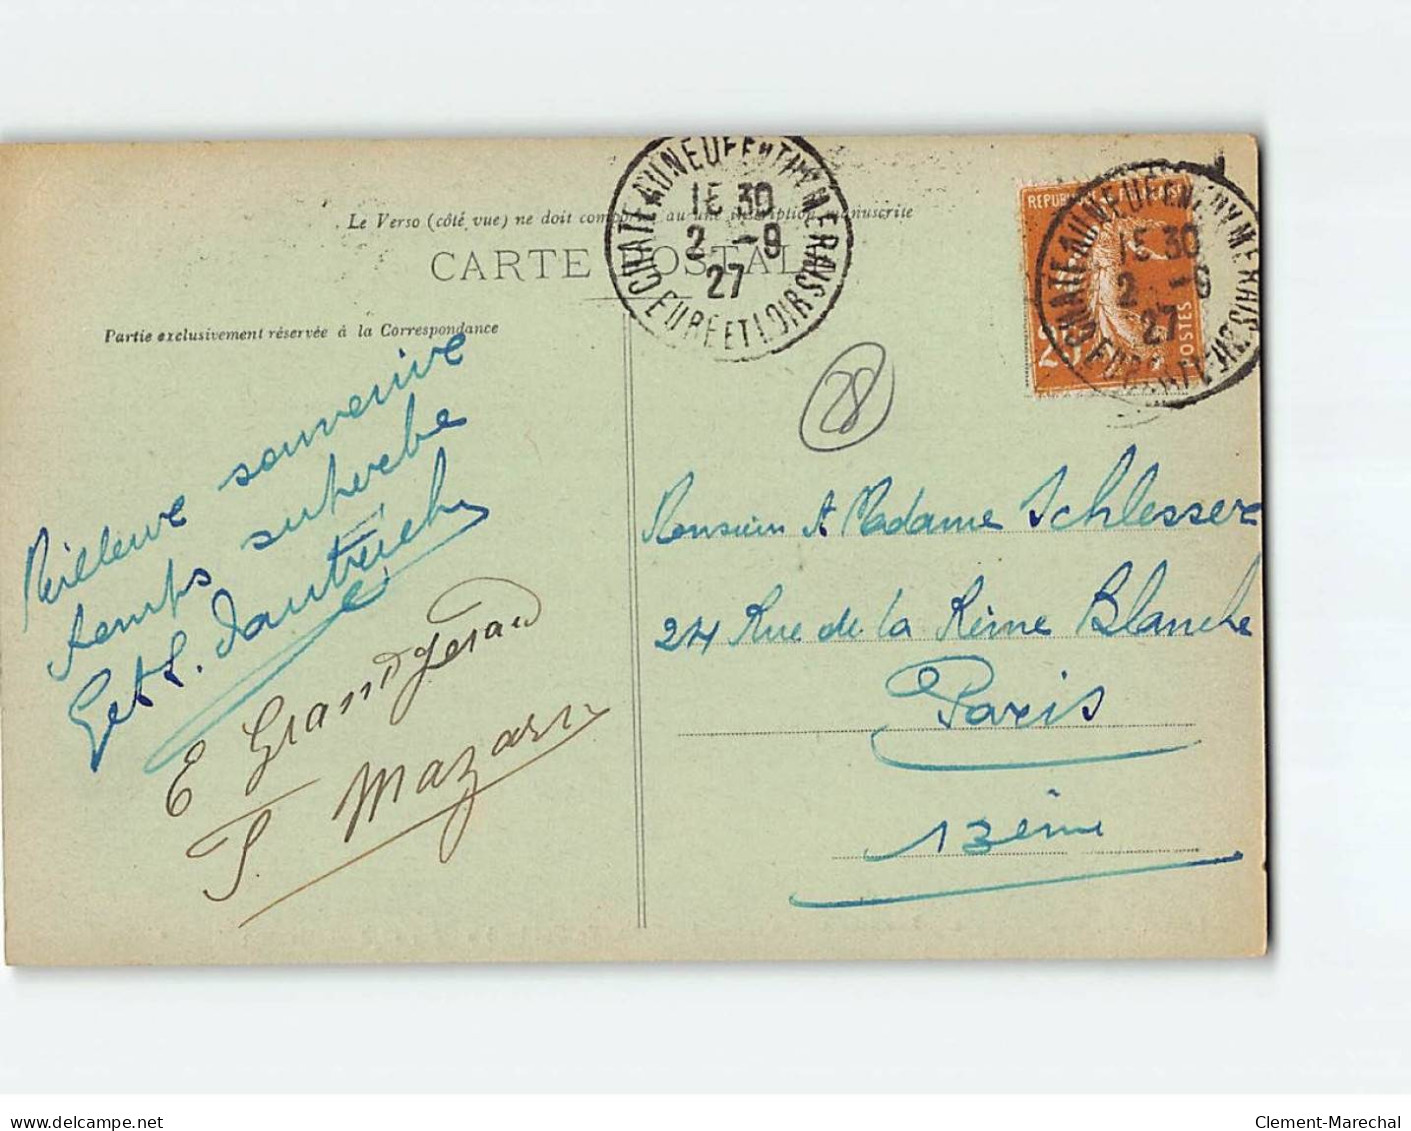 Le Verso (côté vue) ne doit comporter aucune inscription manuscrite
CARTE POSTALE
Partie exclusivement réservée à la Correspondance
CHATEAUNEUF EN THYMERAIS
15 30
2 -9
27
EURE ET LOIR
CHATEAUNEUF EN THYMERAIS
15 30
2 -9
27
25
POSTES
28
Meilleure souvenire
temps superbe
G et L.
E Grandgerard
Monsieur et Madame Schlesser
24 Rue de la Reine Blanche
Paris
13ème
www.delcampe.net
Clement-Marechal